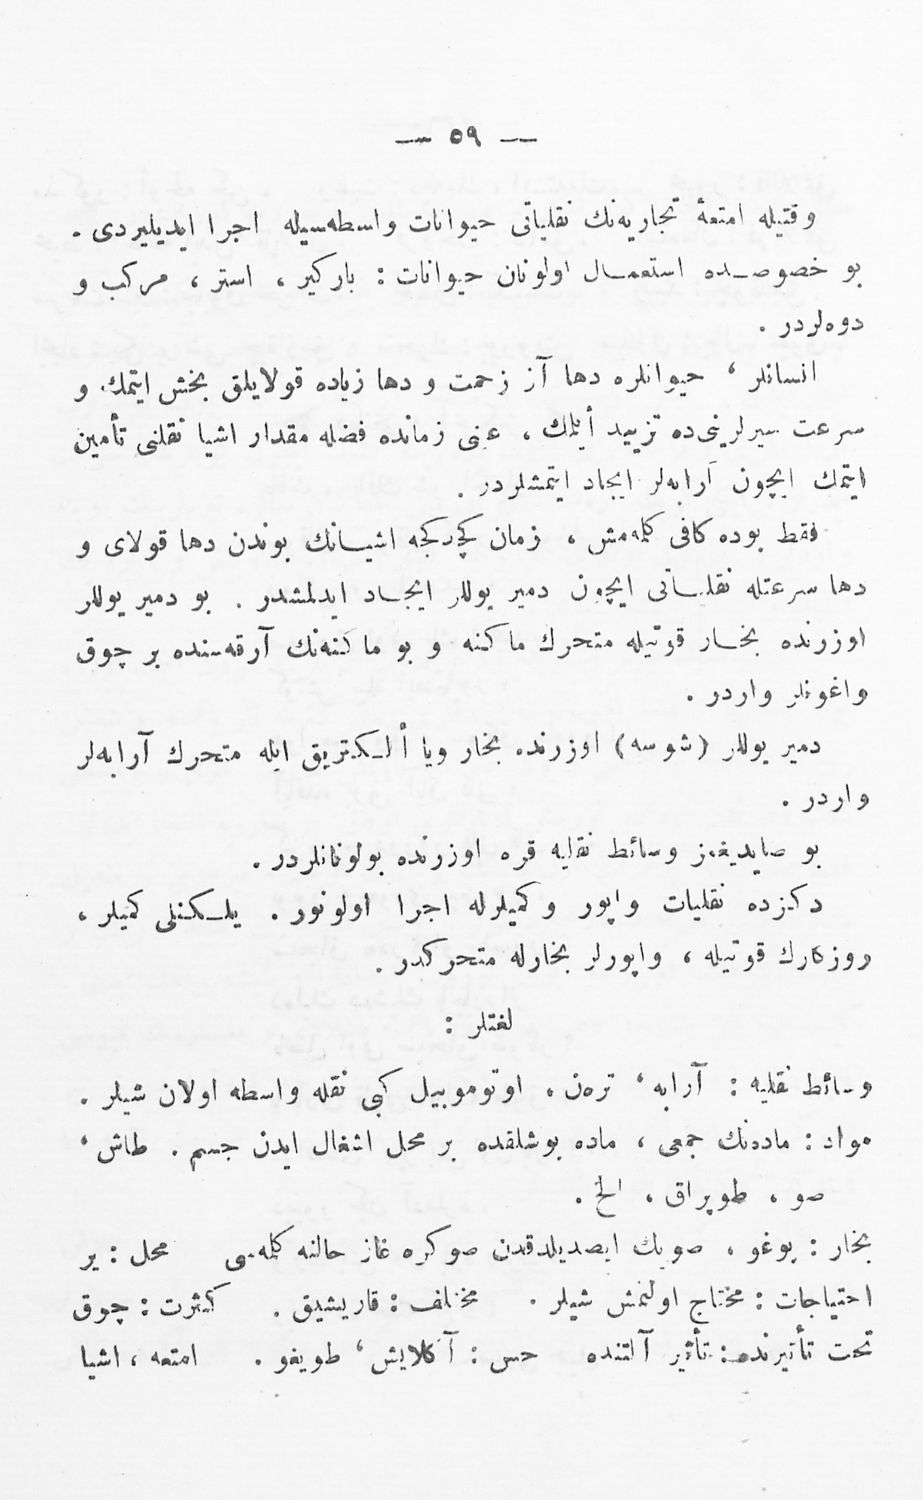 — ٥٩ —
وقتیله امتعهٔ تجاریه‌نك نقلیاتی حیوانات واسطه‌سیله اجرا ایدیلیردی.
بو خصوصده استعمال اولونان حیوانات : بارکیر ، استر ، مرکب و
دوه‌لردر .
انسانلر ، حیوانلره دها آز زحمت و دها زیاده قولایلق بخش ایتمك و
سرعت سیرلرینی‌ده تزیید أیلمك ، عینی زمانده فضله مقدار اشیا نقلنی تأمین
ایتمك ایچون آرابه‌لر ایجاد ایتمشلردر .
فقط بوده کافی کلمه‌مش ، زمان کچدکجه اشیانك بوندن دها قولای و
دها سرعتله نقلیاتی ایچون دمیر یوللر ایجاد ایدلمشدر . بو دمیر یوللر
اوزرنده بخار قوتیله متحرك ماکنه و بو ماکنه‌نك آرقه‌سنده بر چوق
واغونلر واردر .
دمیر یوللر (شوسه) اوزرنده بخار ویا ألکتریق ایله متحرك آرابه‌لر
واردر .
بو صایدیغمز وسائط نقلیه قره اوزرنده بولونانلردر .
دکزده نقلیات واپور و کمیلرله اجرا اولونور . یلکنلی کمیلر ،
روزکارك قوتیله ، واپورلر بخارله متحرکدر .
لغتلر :
وسائط نقلیه : آرابه ، ترەن ، اوتوموبیل کبی نقله واسطه اولان شیلر .
مواد : ماده‌نك جمعی ، ماده بوشلقده بر محل اشغال ایدن جسم . طاش ،
صو ، طوپراق ، الخ .
بخار : بوغو ، صویك ایصدیلدقدن صوکره غاز حالنه کلمه‌سی محل : یر
احتیاجات : محتاج اولنمش شیلر . مختلف : قاریشیق . کثرت : چوق
تحت تأثیرنده : تأثیر آلتنده حس : آکلایش ، طویغو . امتعه ، اشیا